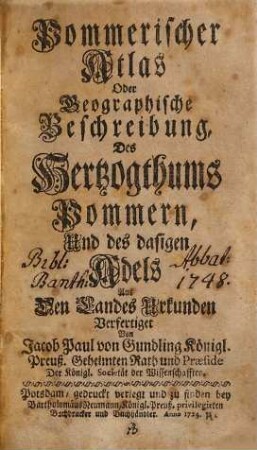 Pommerischer
Atlas
Oder
Geographische
Beschreibung,
Des
Hertzogthums
Pommern,
Und des dasigen
Bibl: Adels Abbat:
Banth. 1748.
Aus
Den Landes Urkunden
Verfertiget
Von
Jacob Paul von Gundling Königl.
Preuß. Geheimten Rath und Præside
Der Königl. Societät der Wissenschafften.
Potsdam, gedruckt verlegt und zu finden bey
Bartholomäus Neumann, Königl. Preuß. privilegirten
Buchdrucker und Buchhändler. Anno 1724.